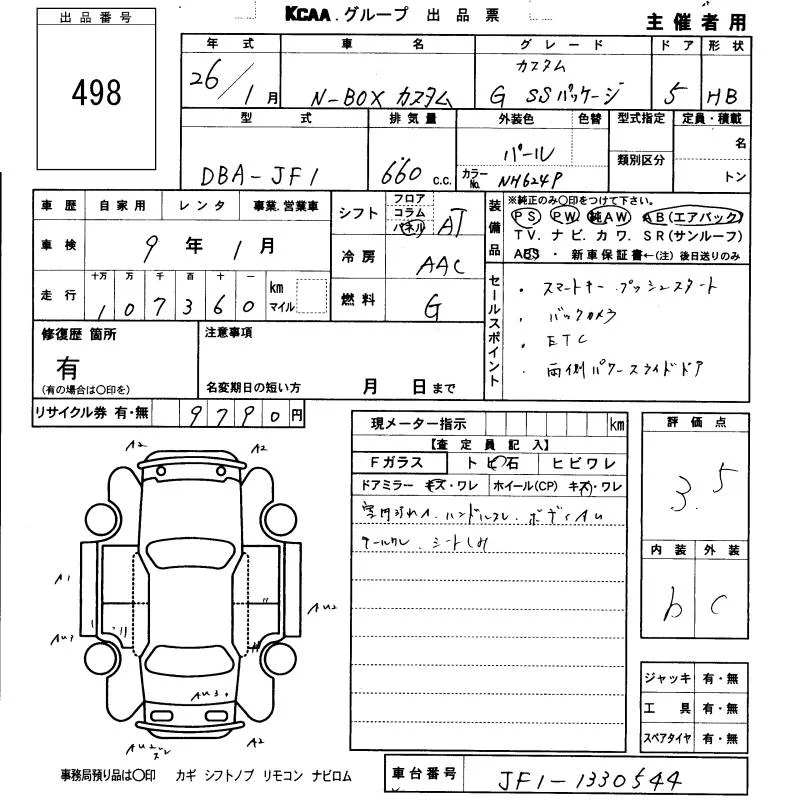 KCAA グループ 出品票
主催者用
出品番号
498
年式 車名 グレード ドア 形状
26/1月 N-BOX カスタム カスタム G SSパッケージ 5 HB
型式 排気量 外装色 色替 型式指定 定員・積載
DBA-JF1 660 c.c. パール 名
カラーNo. NH624P 類別区分 トン
車歴 自家用 レンタ 事業.営業車
シフト フロア コラム パネル AT
装備品 ※純正のみ〇印をつけて下さい。
PS PW 純AW AB(エアバック)
TV. ナビ. カワ. SR(サンルーフ)
ABS ・ 新車保証書←(注) 後日送りのみ
車検 9年1月
冷房 AAC
走行 十万 万 千 百 十 一
107360 km マイル
燃料 G
セールスポイント
・スマートキー プッシュスタート
・バックカメラ
・ETC
・両側パワースライドドア
修復歴 箇所
有
(有の場合は〇印を)
注意事項
名変期日の短い方 月 日まで
リサイクル券 有・無 9790円
現メーター指示 km
【査定員記入】
Fガラス トビ石 ヒビワレ
ドアミラー キズ・ワレ ホイール(CP) キズ・ワレ
ハンドルスレ. ボディAU
シートしみ
評価点
3.5
内装 外装
b C
ジャッキ 有・無
工具 有・無
スペアタイヤ 有・無
A2
A2
A1
AU2
AU3
AU3
AU2
A2
事務局預り品は〇印 カギ シフトノブ リモコン ナビロム
車台番号 JF1-1330544